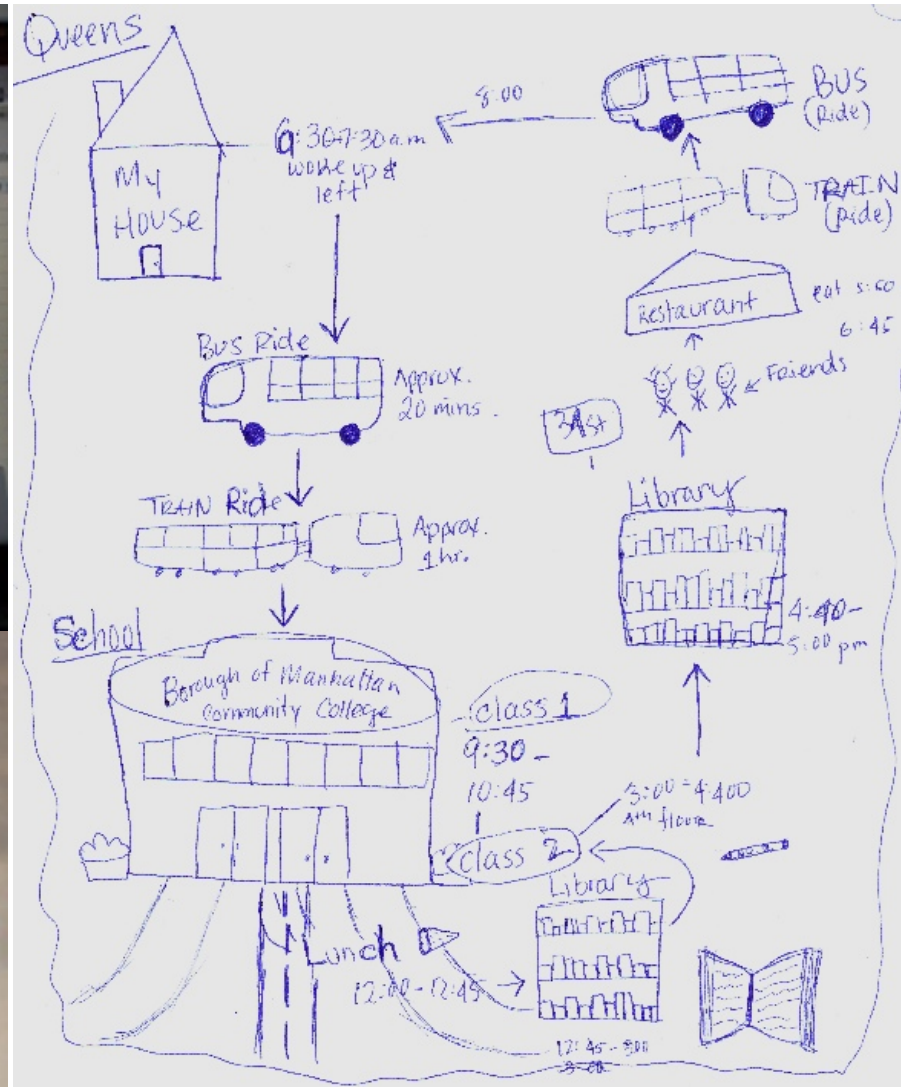 Queens
My
HOUSE
6:30-7:30 a.m
woke up &
left
8:00
BUS
(Ride)
TRAIN
(Ride)
Restaurant
eat
6:45
Friends
Bus Ride
Approx.
20 mins.
TRAIN Ride
Approx.
1hr.
Library
4:40-
5:00 pm
School
Borough of Manhattan
Community College
class 1
9:30-
10:45
class 2
4th floor
Library
Lunch
12:00-12:45